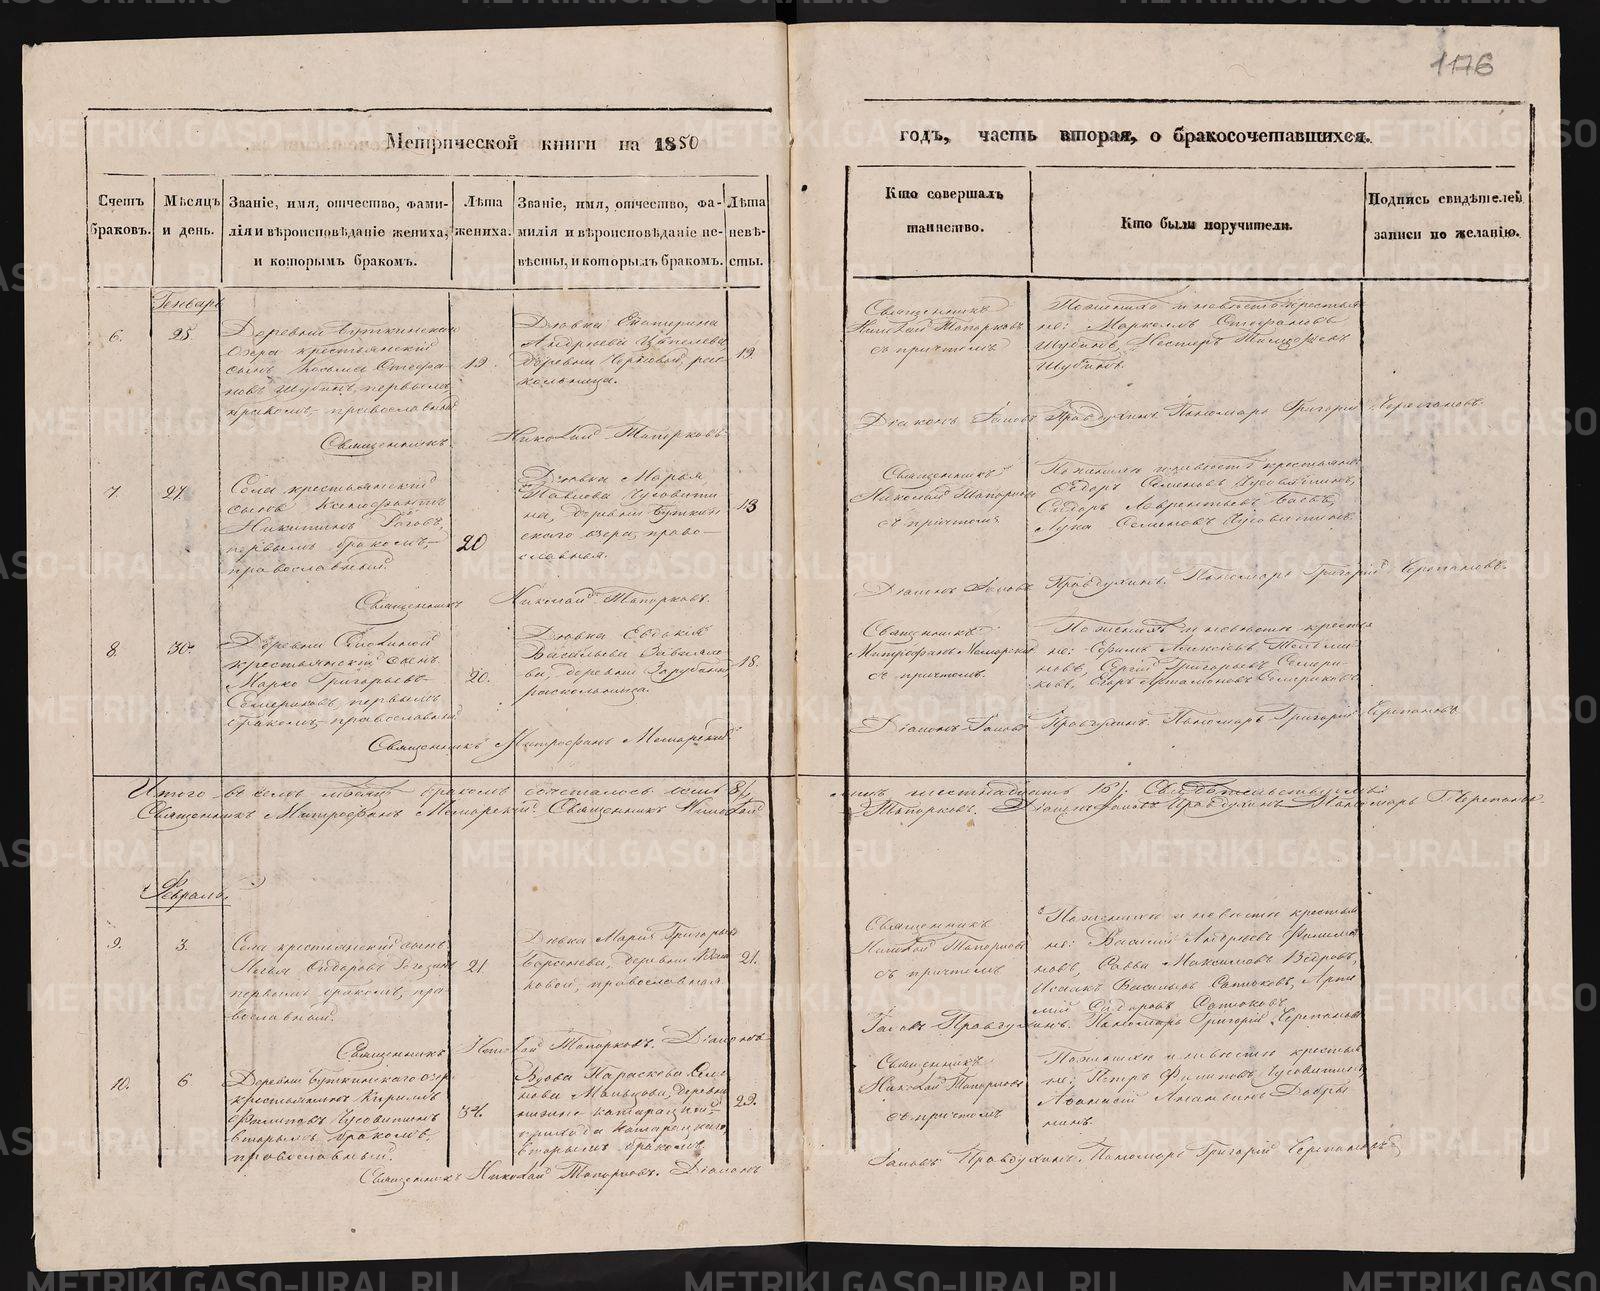 1176
Метрической книги на 1850
годъ, часть вторая, о бракосочетавшихся.
Счетъ браковъ.
Мѣсяцъ и день.
Званіе, имя, отчество, фами-
лія и вѣроисповѣданіе жениха,
и которымъ бракомъ.
Лѣта
жениха.
Званіе, имя, отчество, фа-
милія и вѣроисповѣданіе не-
вѣсты, и которымъ бракомъ.
Лѣта
невѣ-
сты.
Кто совершалъ
таинство.
Кто были поручители.
Подпись свидѣтелей
записи по желанію.
Генварь
6.
25.
Деревни Буткинскаго
озера крестьянскій
сынъ Косьма Стефа-
новъ Шубинъ, первымъ
бракомъ, православный
19.
Дѣвка Екатерина
Андреева
деревни рас-
кольница.
19.
Священникъ
Николай Топорковъ
съ причтомъ
По женихѣ и невѣстѣ крестья
не: Маркелъ Стефановъ
Шубинъ, Нестеръ
Шубинъ.
Священникъ Николай Топорковъ
Діаконъ Іаковъ Правдухинъ. Пономарь Григорій Черепановъ.
7.
27.
Села крестьянскій
сынъ Ксенофонтъ
Никитинъ Роговъ,
первымъ бракомъ,
православный.
20
Дѣвка Марья
Павлова Чусовити
на, деревни Буткин
скаго озера, право-
славная.
18
Священникъ
Николай Топорковъ
съ причтомъ
По женихѣ и невѣстѣ крестьяне
Ѳедоръ Семеновъ Чусовитинъ,
Сидоръ Лаврентьевъ
Лука Семеновъ Чусовитинъ.
Священникъ Николай Топорковъ.
Діаконъ Іаковъ Правдухинъ. Пономарь Григорій Черепановъ.
8.
30.
Деревни
крестьянскій сынъ
Марко Григорьевъ
Семериковъ, первымъ
бракомъ, православный
20.
Дѣвка Евдокія
Васильева Завьяло-
ва, деревни Зарубиной,
раскольница.
18.
Священникъ
Митрофанъ Меморскій
съ причтомъ.
По женихѣ и невѣстѣ крестья
не: Ефимъ Алексѣевъ
новъ, Сергій Григорьевъ Семери-
ковъ, Егоръ Артамоновъ Семериковъ
Священникъ Митрофанъ Меморскій
Діаконъ Іаковъ Правдухинъ. Пономарь Григорій Черепановъ
Итого въ семъ мѣсяцѣ бракомъ сочеталось восемь 8/, лицъ шестнадцать 16/. Свидѣтельствуемъ:
Священникъ Митрофанъ Меморскій. Священникъ Николай Топорковъ. Діаконъ Іаковъ Правдухинъ. Пономарь Г. Черепановъ.
Февраль.
9.
3.
Села крестьянскій сынъ
Илья Сидоровъ Рогозинъ
первымъ бракомъ, пра-
вославный.
21.
Дѣвка Марія Григорьева
Борсенева, деревни
ковой, православная
21.
Священникъ
Николай Топорковъ
съ причтомъ
По женихѣ и невѣстѣ крестья
не: Василій Андреевъ Филимо
новъ, Савва Максимовъ Ведровъ,
Исаакъ Васильевъ Сатюковъ,
Сидоровъ Сатюковъ.
Священникъ Николай Топорковъ. Діаконъ
Іаковъ Правдухинъ. Пономарь Григорій Черепановъ
10.
6.
Деревни Буткинскаго озера
крестьянинъ Кирилъ
Филиповъ Чусовитинъ
вторымъ бракомъ,
православный.
34.
Вдова Параскева Семе
нова Мальцова, деревни
нижне катарацкой
прихода Катарацкаго,
вторымъ бракомъ
22.
Священникъ
Николай Топорковъ
съ причтомъ
По женихѣ и невѣстѣ крестья
не: Петръ Филиповъ Чусовитинъ,
Аѳанасій Ананьинъ Добры
нинъ.
Священникъ Николай Топорковъ. Діаконъ
Іаковъ Правдухинъ. Пономарь Григорій Черепановъ
METRIKI.GASO-URAL.RU